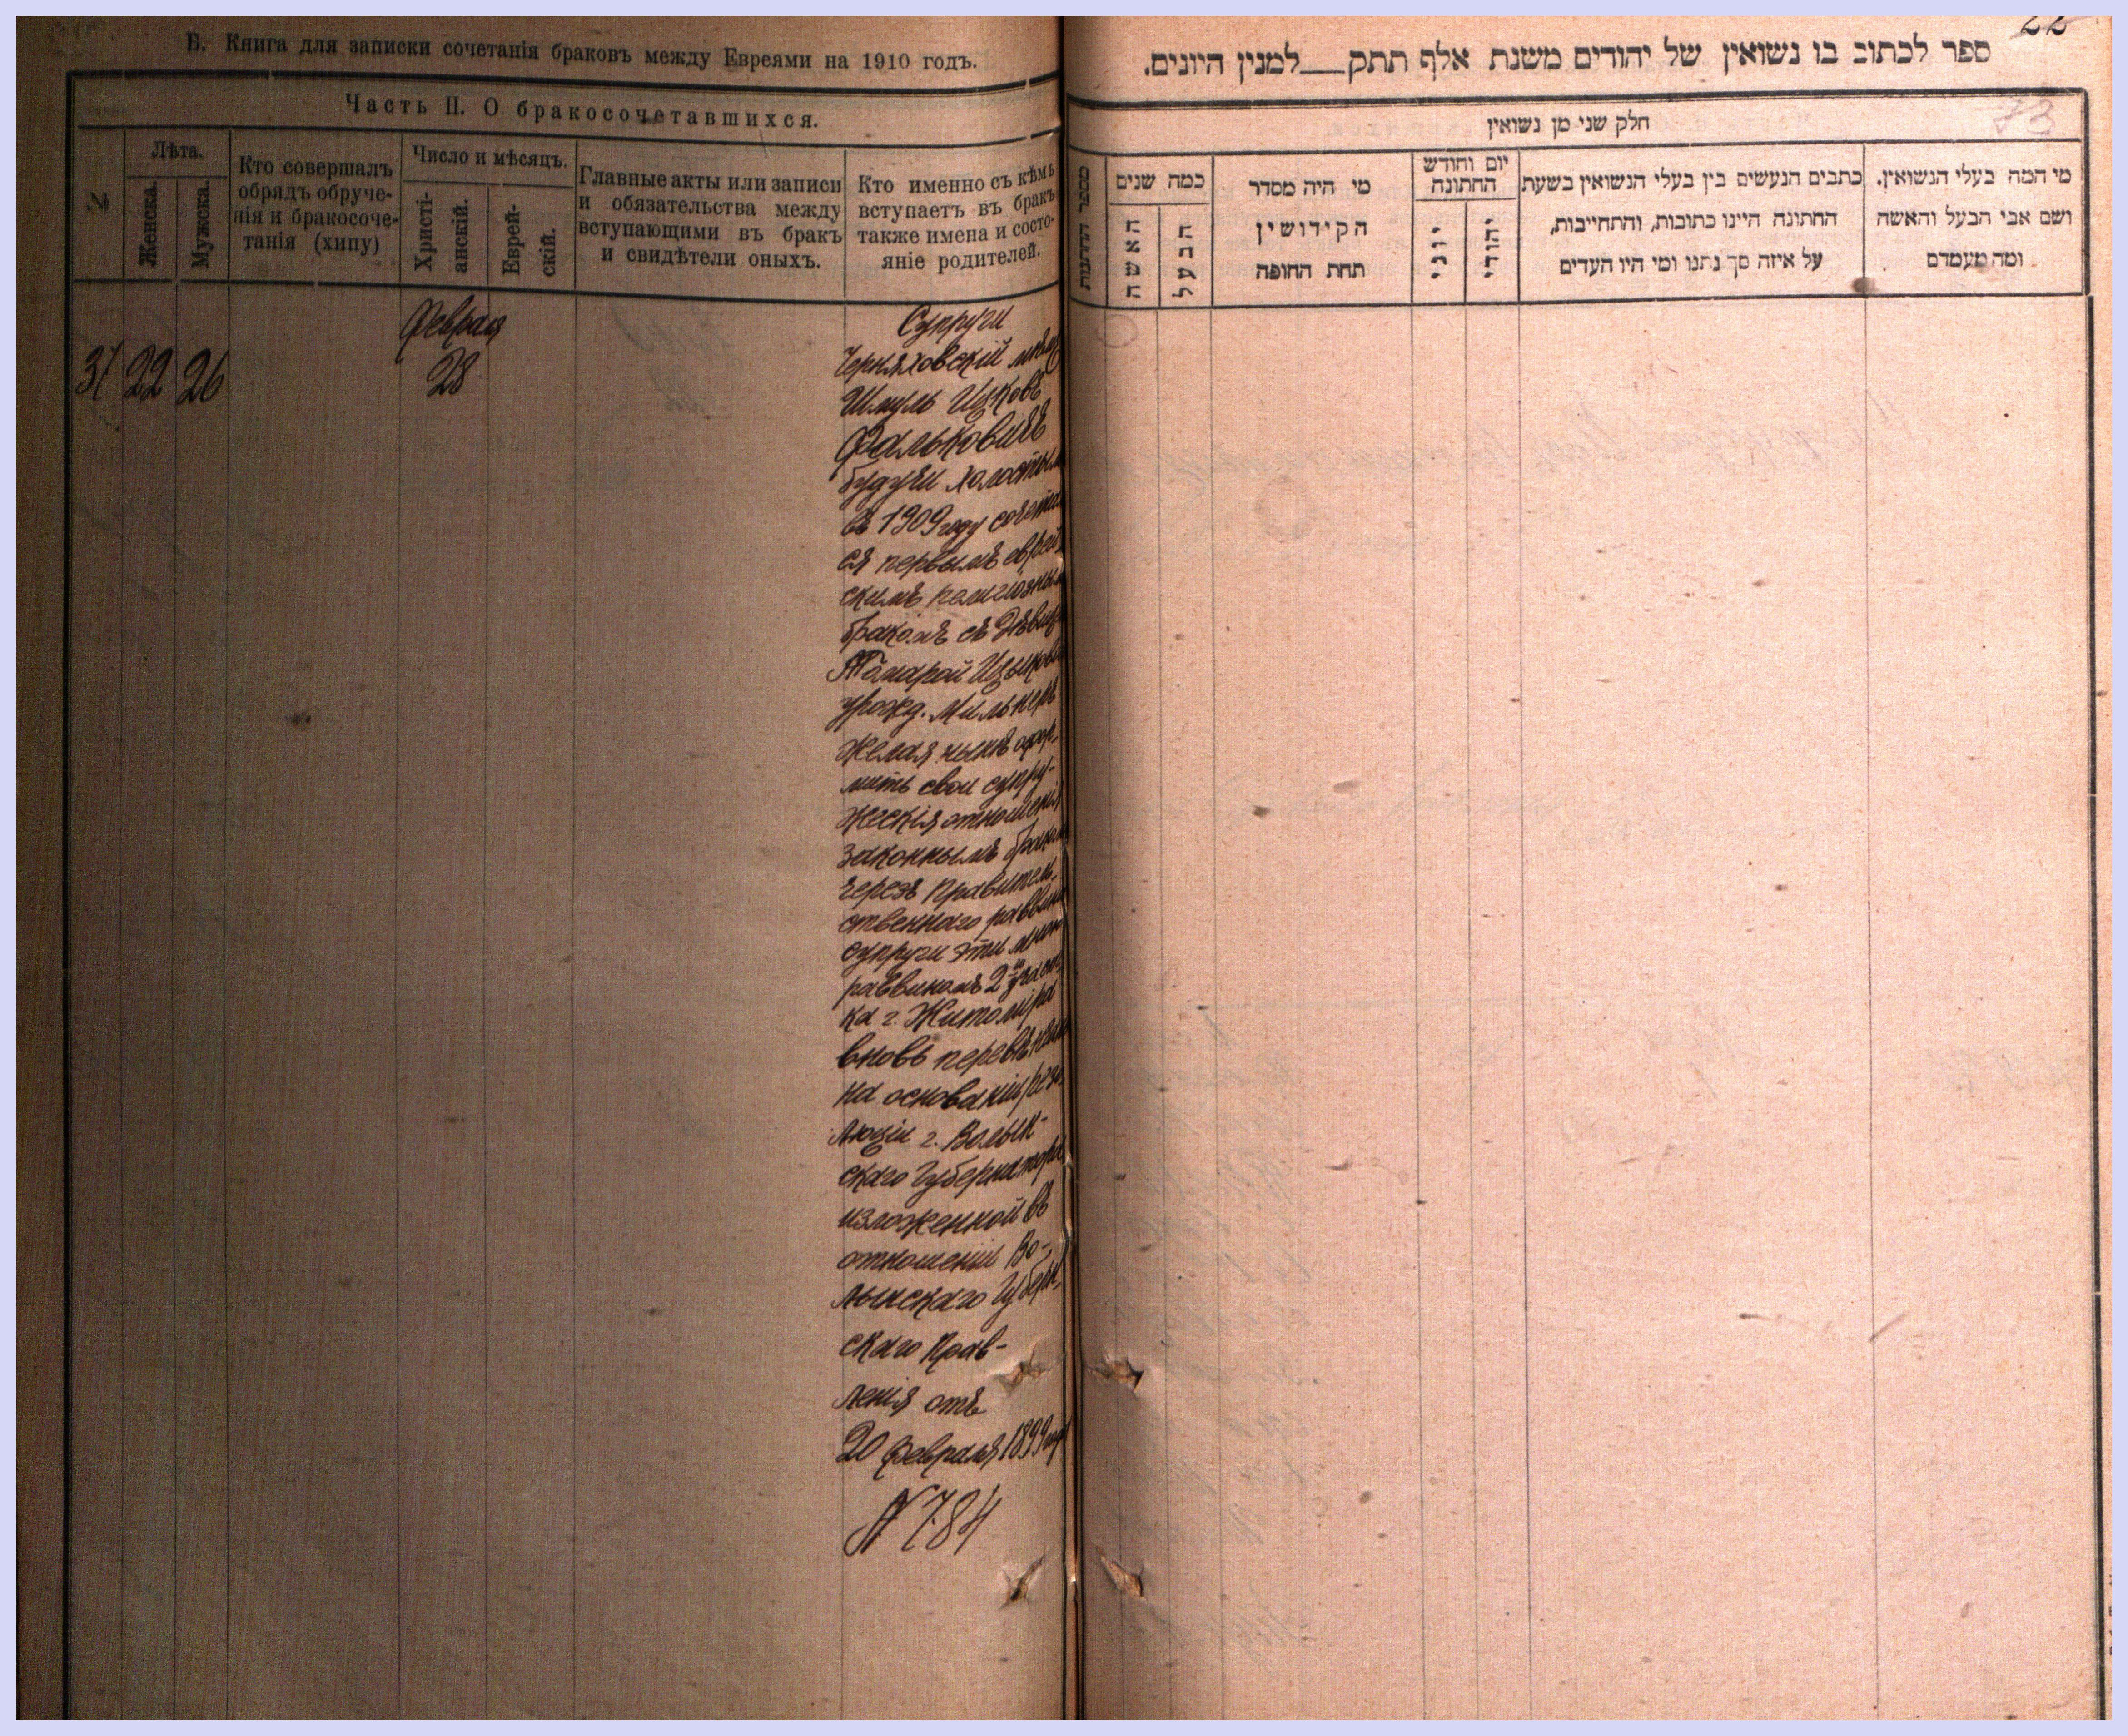 Б. Книга для записки сочетанія браковъ между Евреями на 1910 годъ.
Часть II. О бракосочетавшихся.
№
Лѣта.
Женска.
Мужска.
Кто совершалъ
обрядъ обруче-
нія и бракосоче-
танія (хипу)
Число и мѣсяцъ.
Христі-
анскій.
Еврей-
скій.
Главные акты или записи
и обязательства между
вступающими въ бракъ
и свидѣтели оныхъ.
Кто именно съ кѣмъ
вступаетъ въ бракъ
также имена и состо-
яніе родителей.
31 22 26
Февраля
28
Супруги
Черняховскій мѣщ
Шмуль Ицковъ
Фальковичъ
будучи холостым
въ 1909 году сочета
ся первымъ еврей
скимъ религіозным
бракомъ съ дѣвиц
Тамарой Ицьков
урожд. Мильнеръ
желая нынѣ офор-
мить свои супру-
жескія отношенія
законнымъ браком
черезъ Правитель-
ственнаго раввина
супруги эти мною
раввиномъ 2го участ
ка г. Житоміра
вновь перевѣнчан
на основаніи резо
люціи г. Волын-
скаго Губернатора
изложенной въ
отношеніи Во-
лынскаго Губерн-
скаго Прав-
ленія отъ
20 февраля 1899 год
N 784
22
73
ספר לכתוב בו נשואין של יהודים משנת אלף תתק___למנין היונים.
חלק שני מן נשואין
מספר החתונות
כמה שנים
האשה
הבעל
מי היה מסדר
הקידושין
תחת החופה
יום וחודש
החתונה
יוני
יהודי
כתבים הנעשים בין בעלי הנשואין בשעת
החתונה היינו כתובות, והתחייבות,
על איזה סך נתנו ומי היו העדים
מי המה בעלי הנשואין.
ושם אבי הבעל והאשה
ומה מעמדם